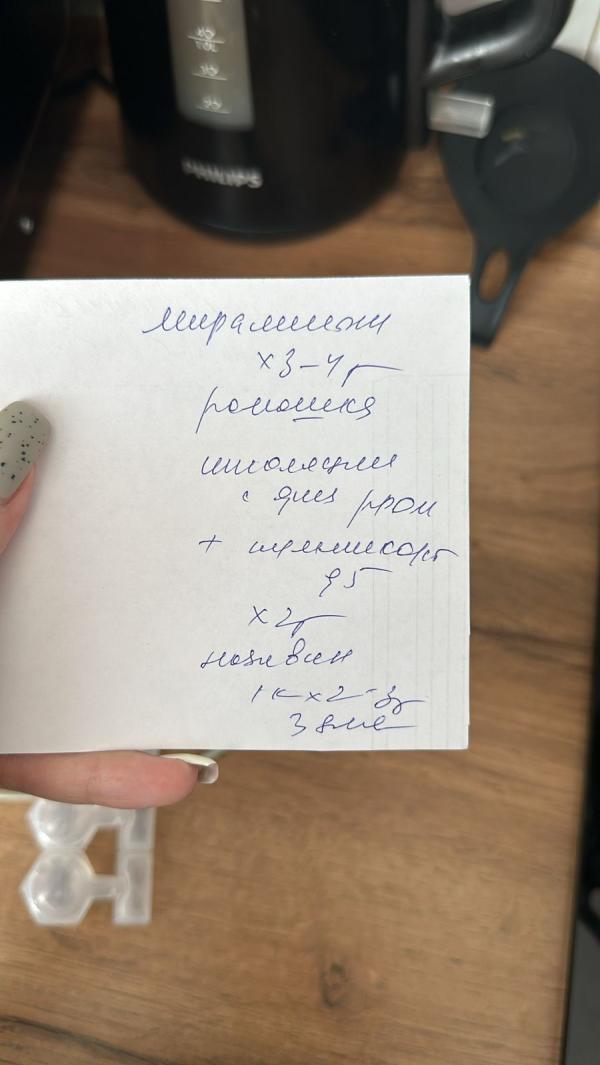 PHILIPS
мирамистин
х 3-4 р
ромашка
ингаляции
с физ рром
+ пульмикорт
0,5
х 2р
називин
1к х 2-3р
3 дня